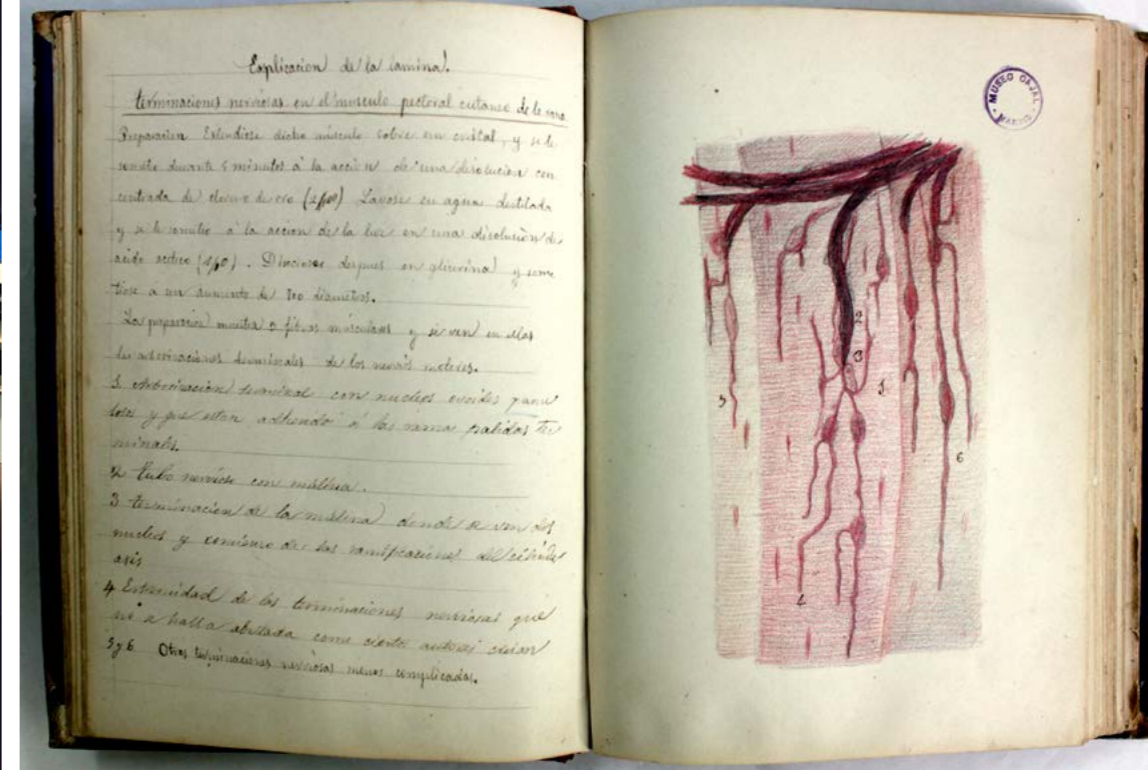 Explicacion de la lamina.
terminaciones nerviosas en el musculo pectoral cutaneo de la rana
Preparacion Estendiose dicho musculo sobre un cristal, y se le
sometio durante 5 minutos á la accion de una disolucion con
centrada de cloruro de oro Lavose en agua destilada
y se le sometio á la accion de la luz en una disolucion de
acido acetico . despues en glicerina y some
tiose á un aumento de diametros.
La preparacion muestra fibras musculares y se ven en ellas
las terminales de los nervios motores.
1 Arborizacion terminal con nucleos ovoides granu
losos y que estan adheridos á las ramas palidas ter
minales.
2 tubo nervioso con mielina.
3 terminacion de la mielina donde se ven dos
nucleos y comienzo de las ramificaciones del cilinder
axis
4 Estremidad de las terminaciones nerviosas que
no se halla abultada como ciertos autores creian
5 y 6 Otras terminaciones nerviosas menos complicadas.
MUSEO CAJAL
MADRID
2
3
1
5
6
4